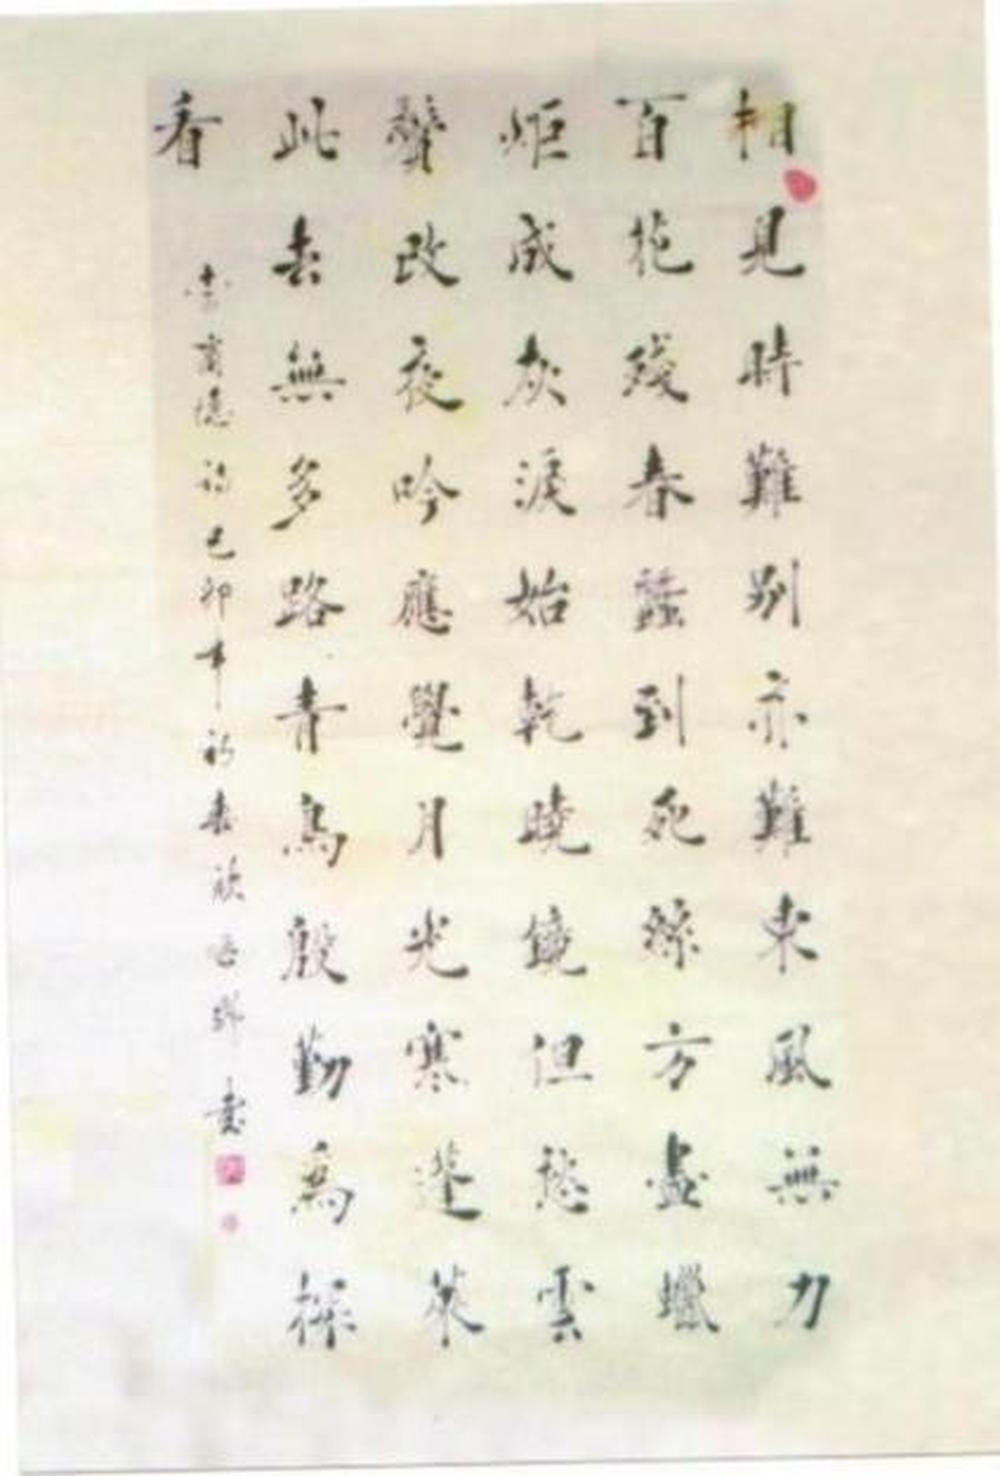 相見時難別亦難東風無力
百花殘春蠶到死絲方盡蠟
炬成灰淚始乾曉鏡但愁雲
鬢改夜吟應覺月光寒蓬萊
此去無多路青鳥殷勤為探
看
李商隱詩己卯年初春書